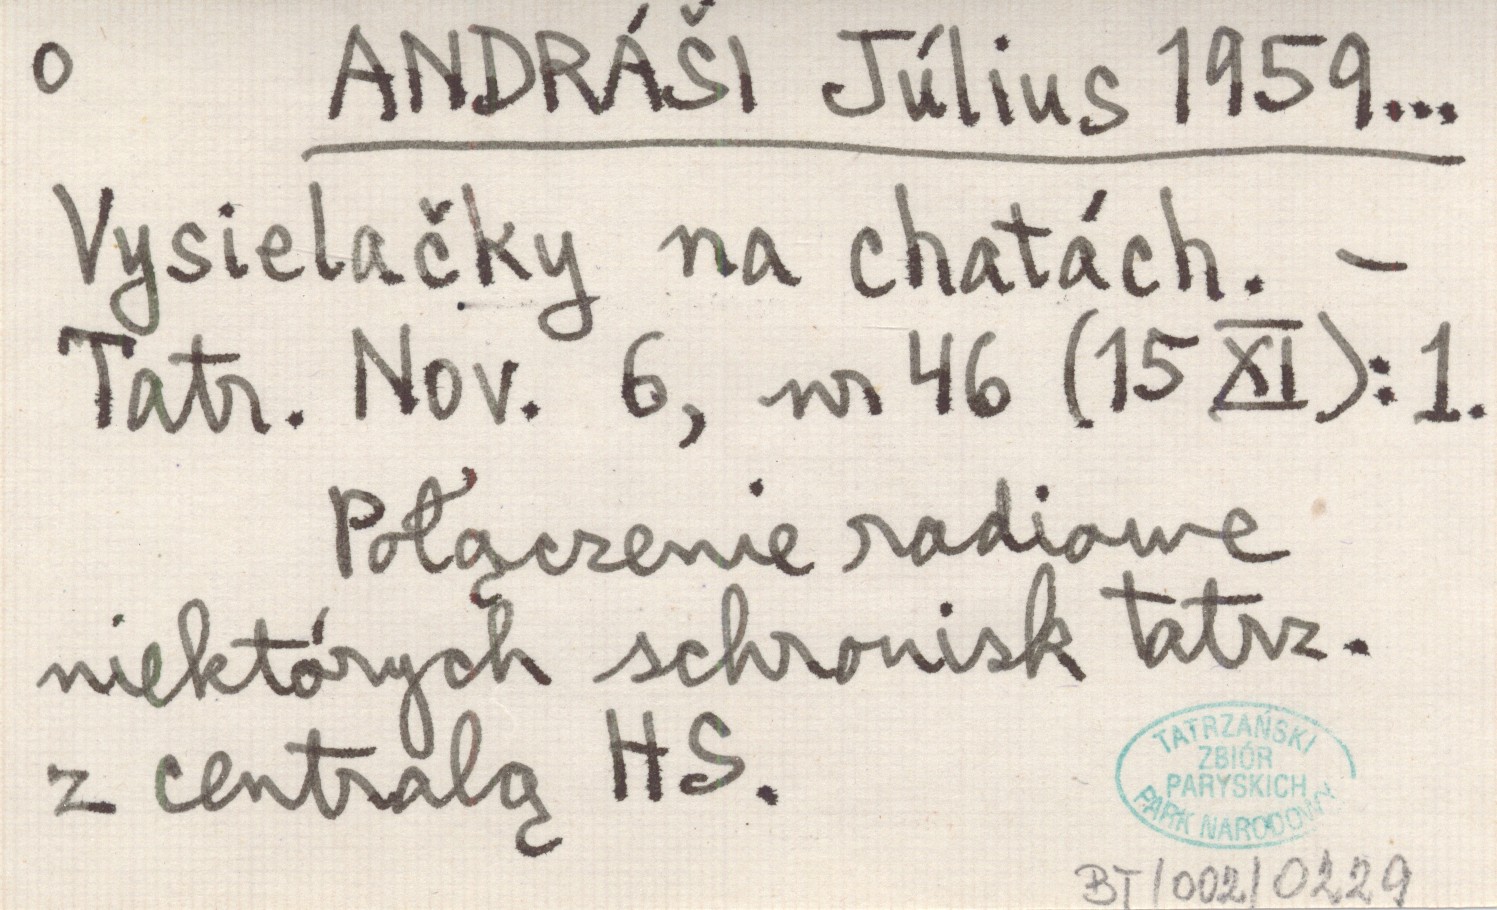 o ANDRÁŠI Július 1959...
Vysielačky na chatách. –
Tatr. Nov. 6, nr 46 (15 XI): 1.
Połączenie radiowe
niektórych schronisk tatrz.
z centralą HS.
TATRZAŃSKI
ZBIÓR
PARYSKICH
PARK NARODOWY
BT/002/0229